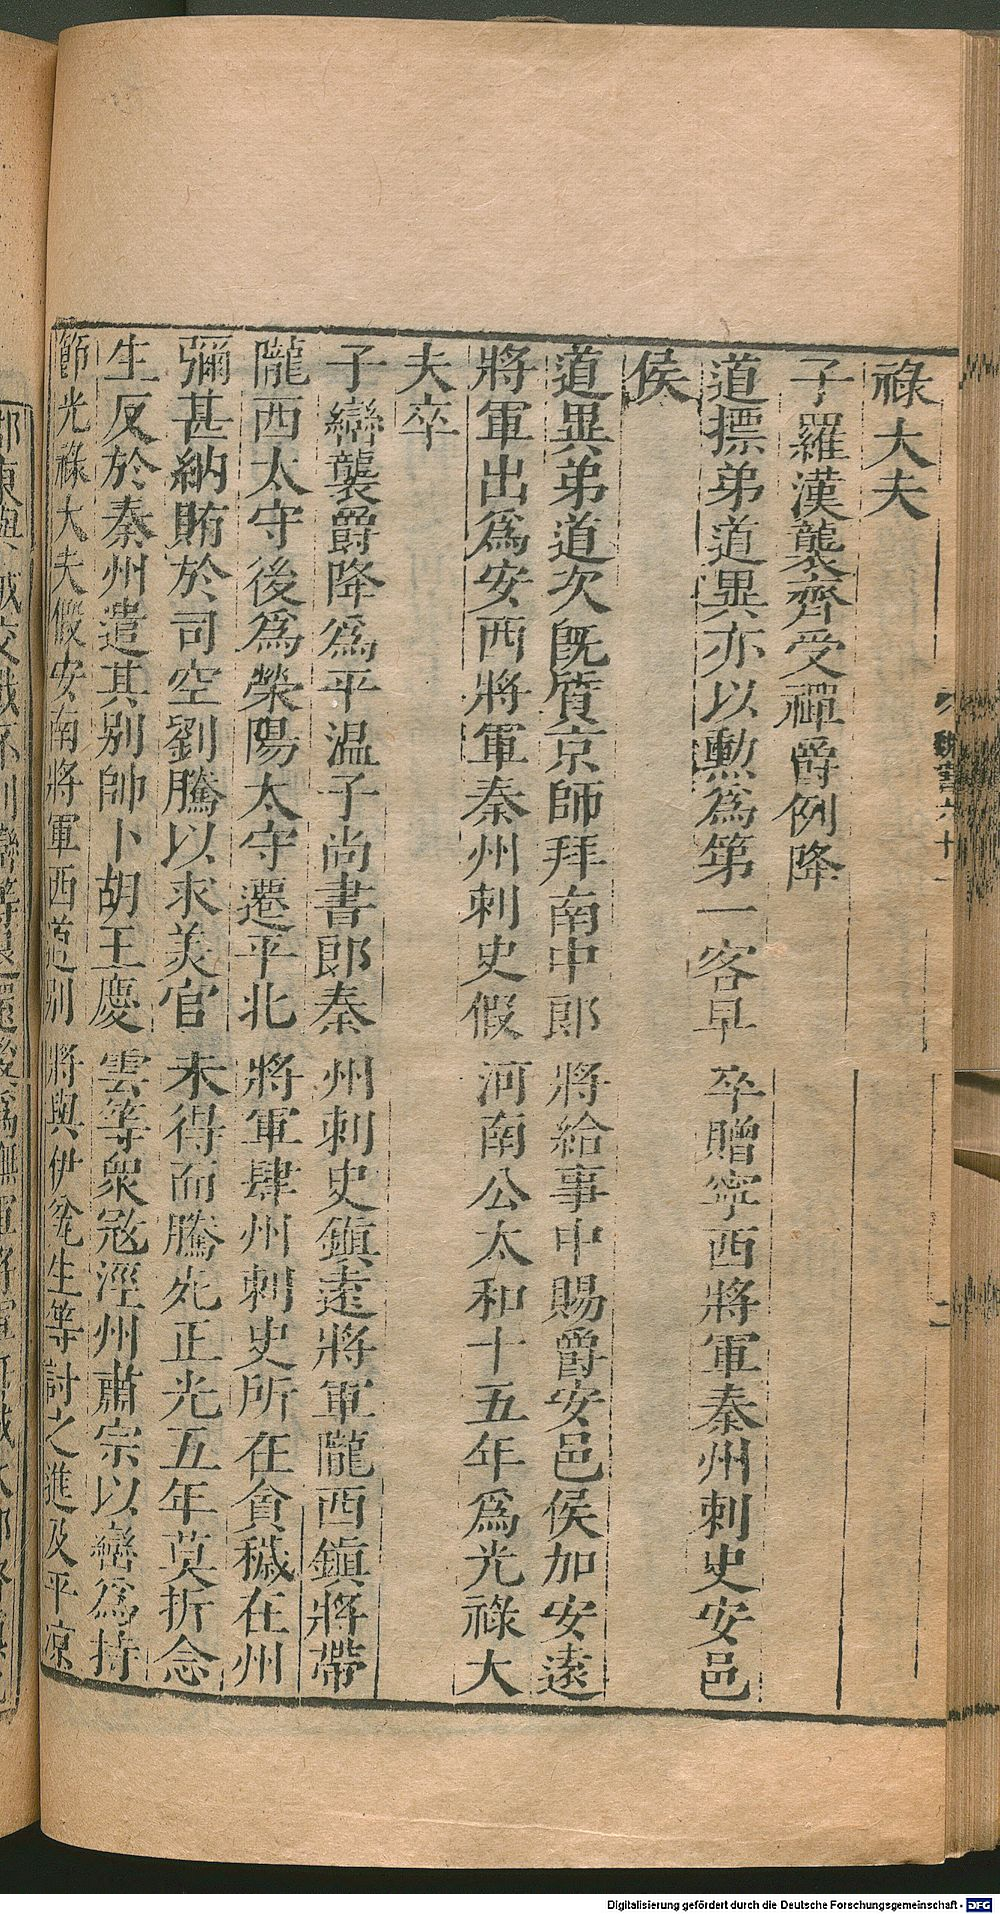 祿大夫
子羅漢襲齊受禪爵例降
道摽弟道異亦以勲爲第一客早卒贈寧西將軍秦州刺史安邑
侯
道異弟道次既質京師拜南中郎將給事中賜爵安邑侯加安遠
將軍出爲安西將軍秦州刺史假河南公太和十五年爲光祿大
夫卒
子巒襲爵降爲平温子尚書郎秦州刺史鎮遠將軍隴西鎮將帶
隴西太守後爲滎陽太守遷平北將軍肆州刺史所在貪穢在州
彌甚納賄於司空劉騰以求美官未得而騰死正光五年莫折念
生反於秦州遣其别帥卜胡王慶雲等衆宼涇州肅宗以巒爲持
節光祿大夫假安南將軍西道别將與伊瓫生等討之進及平凉
魏書六十一
二
Digitalisierung gefördert durch die Deutsche Forschungsgemeinschaft - DFG